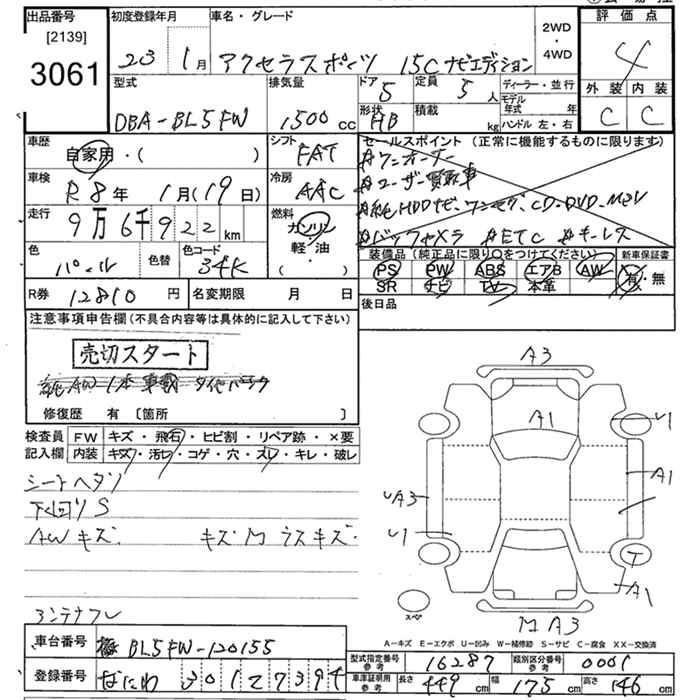 出品番号 初度登録年月 車名・グレード 評価点
[2139]
3061
23年 1月 アクセラスポーツ 15C ナビエディション 2WD・4WD 4
型式 排気量 ドア 5 定員 5人 ディーラー・並行 外装 内装
DBA-BL5FW 1500cc 形状 HB 積載 kg モデル年式 年 C C
ハンドル 左・右
車歴 自家用・( ) シフト FAT セールスポイント(正常に機能するものに限ります)
#ワンオーナー
#ユーザー買取車
車検 R8年 1月(19日) 冷房 AAC #純HDDナビ、ワンセグ、CD・DVD・MSV
走行 9万6千922km 燃料 ガソリン 軽・油 ( ) #バックカメラ #ETC #キーレス
色 パール 色替 色コード 34K 装備品(純正品に限り○をつけてください) 新車保証書
PS PW ABS エアB AW 有・無
SR ナビ TV 本革
R券 12810円 名変期限 月 日 後日品
注意事項申告欄(不具合内容等は具体的に記入して下さい)
売切スタート
純AW1本車載 タイヤパンク
修復歴 有〔箇所 〕
検査員 FW キズ・飛石・ヒビ割・リペア跡・×要
記入欄 内装 キズ・汚レ・コゲ・穴・スレ・キレ・破レ
シートヘタリ
下回りS
AWキズ キズM ラスキズ
アンテナナシ
A3
A1
U1
A1
UA3
U1
T
A1
スペア
M A3
A-キズ E-エクボ U-凹み W-補修跡 S-サビ C-腐食 XX-交換済
車台番号 BL5FW-120155
型式指定番号 参考 16287 類別区分番号 参考 0001
登録番号 なにわ 301 2 7394
車庫証明用 参考 長さ 449cm 幅 175cm 高さ 146cm